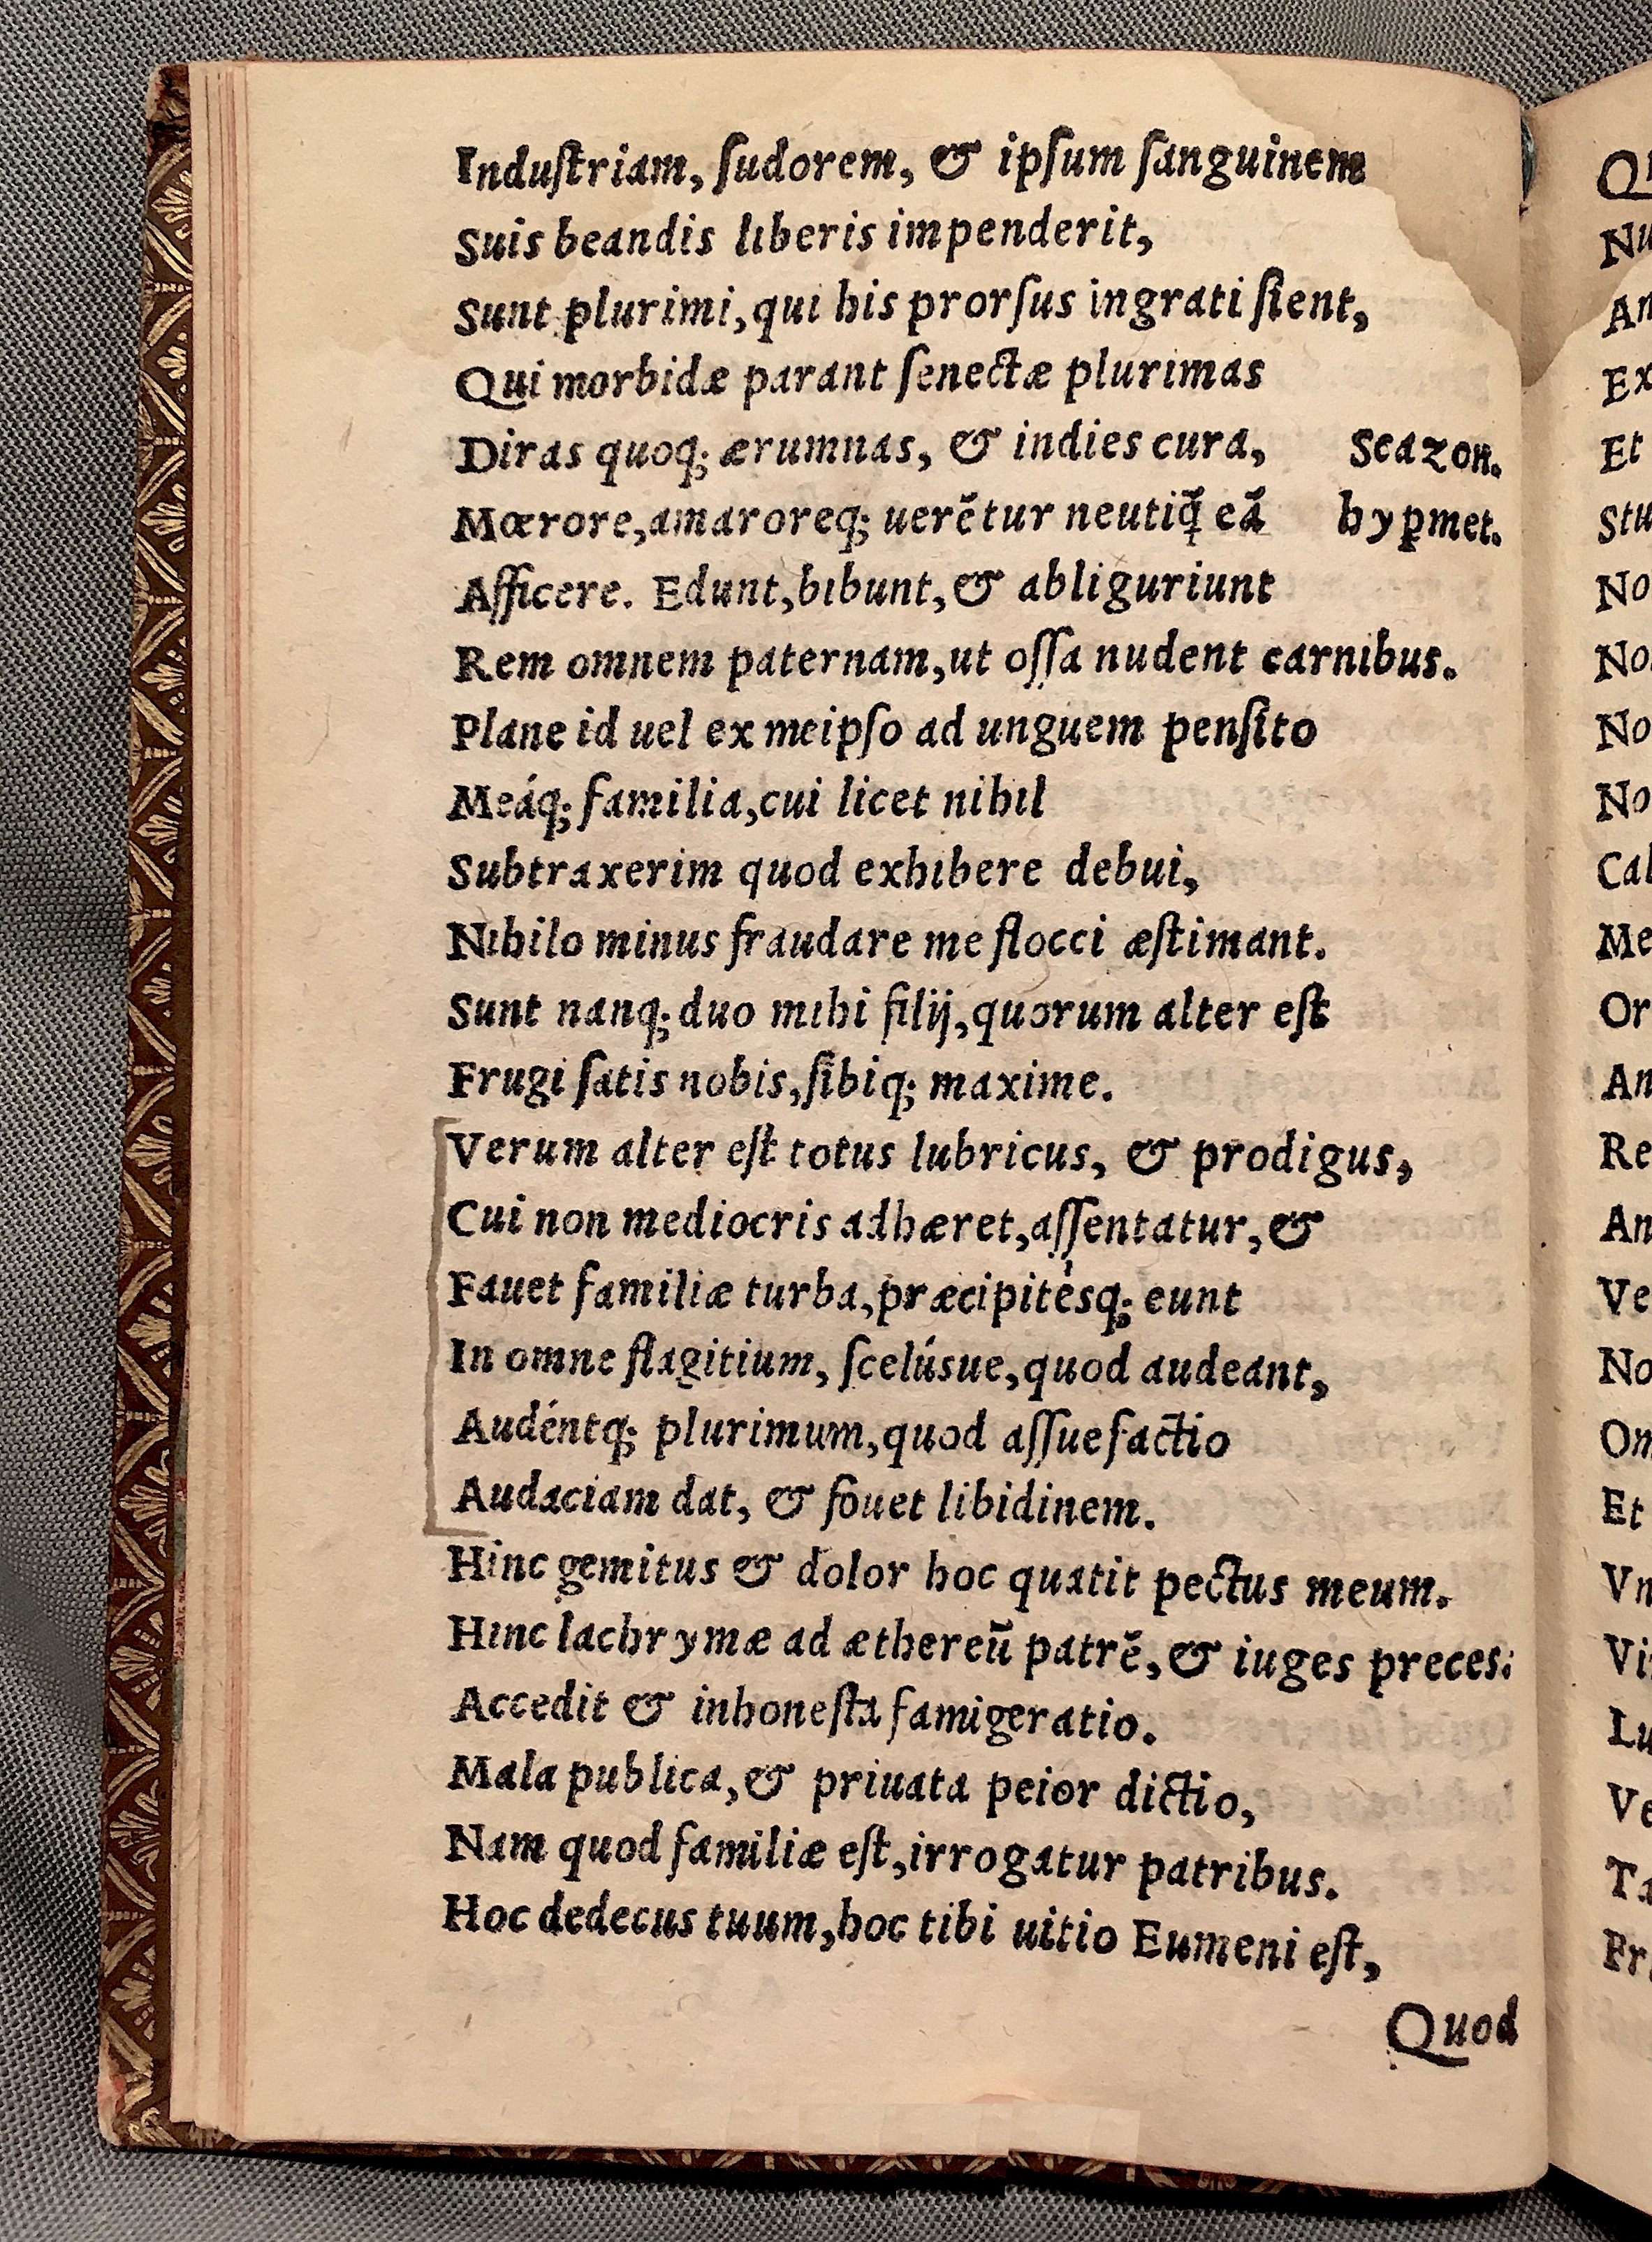 Induſtriam, ſudorem, & ipſum ſanguinem
Suis beandis liberis impenderit,
Sunt plurimi, qui his prorſus ingrati ſient,
Qui morbidæ parant ſenectæ plurimas
Diras quoq; ærumnas, & indies cura, Scazon.
Mœrore, amaroreq; uerẽtur neutiq̃ eã hyꝑmet.
Afficere. Edunt, bibunt, & abliguriunt
Rem omnem paternam, ut oſſa nudent carnibus.
Plane id uel ex meipſo ad unguem penſito
Meáq; familia, cui licet nihil
Subtraxerim quod exhibere debui,
Nihilo minus fraudare me flocci æſtimant.
Sunt nanq; duo mihi filij, quorum alter eſt
Frugi ſatis nobis, ſibiq; maxime.
Verum alter eſt totus lubricus, & prodigus,
Cui non mediocris adhæret, aſſentatur, &
Fauet familiæ turba, præcipitésq; eunt
In omne flagitium, ſcelúsue, quod audeant,
Audéntq; plurimum, quod aſſuefactio
Audaciam dat, & fouet libidinem.
Hinc gemitus & dolor hoc quatit pectus meum.
Hinc lachrymæ ad æthereũ patrẽ, & iuges preces:
Accedit & inhoneſta famigeratio.
Mala publica, & priuata peior dictio,
Nam quod familiæ eſt, irrogatur patribus.
Hoc dedecus tuum, hoc tibi uitio Eumeni eſt,
Quod
Nu
Ex
Et
Stu
No
No
No
No
Cal
Me
Or
An
Re
An
Ve
No
Om
Et
Lu
Ve